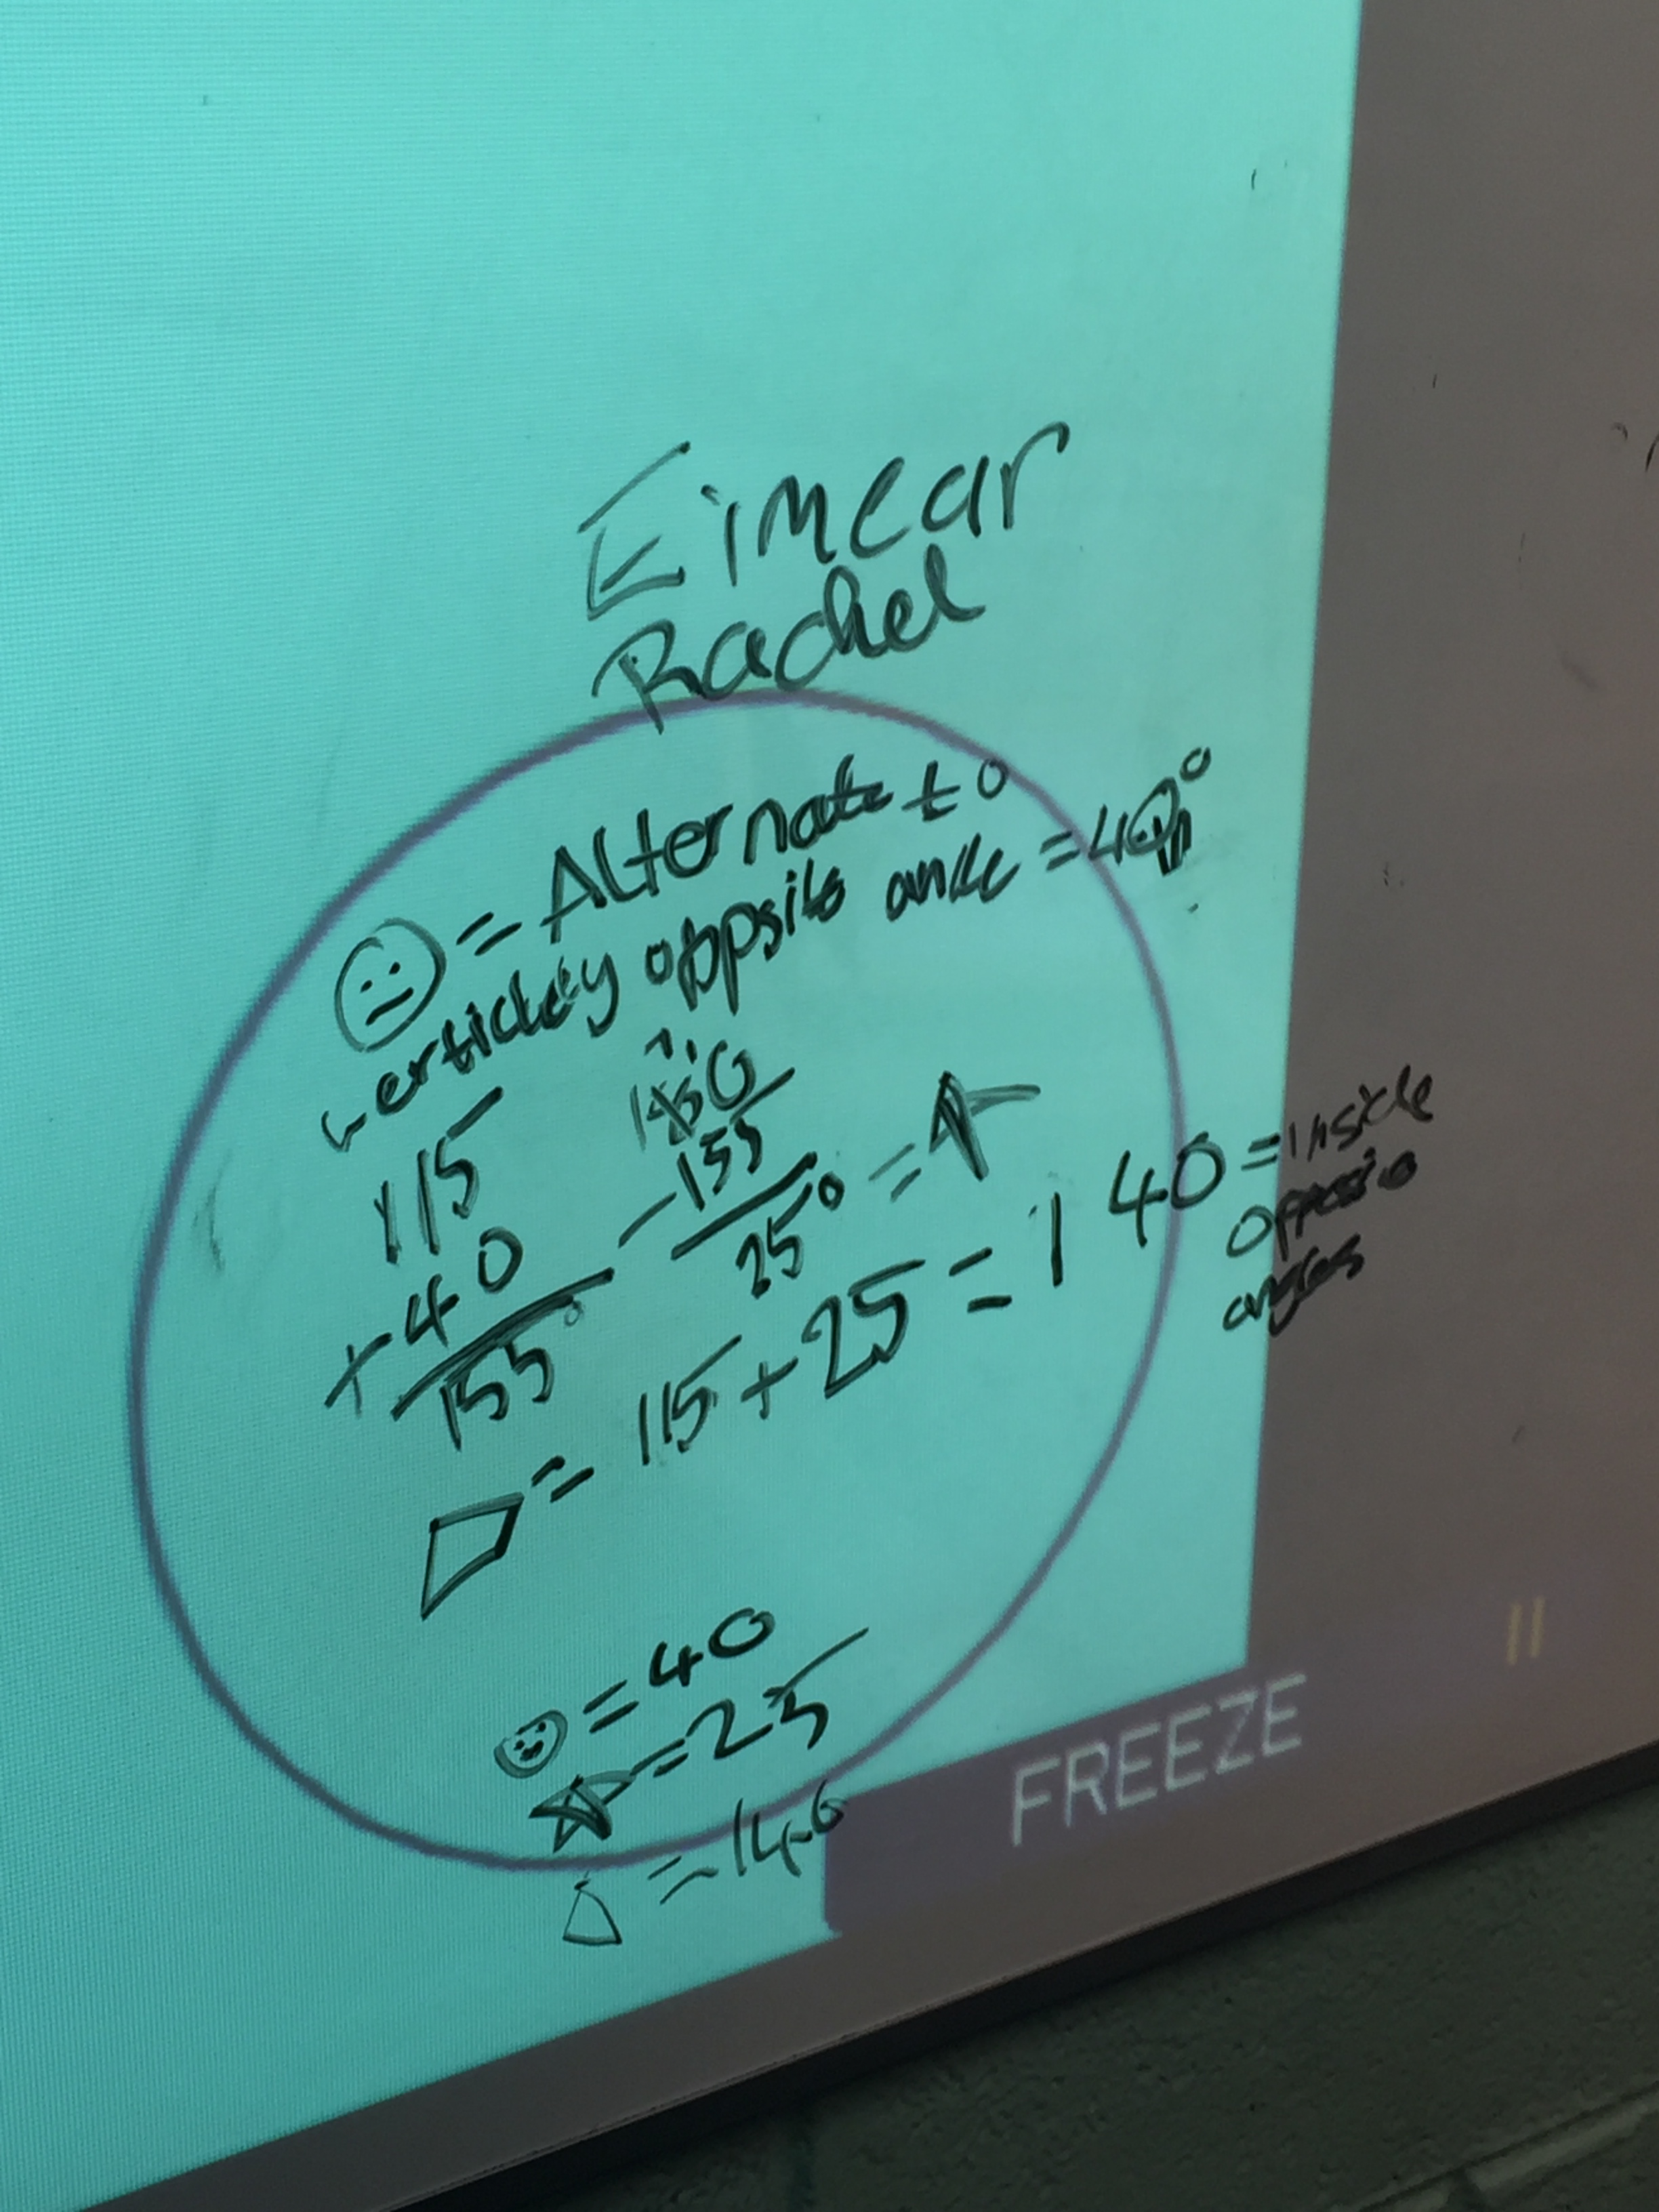 Eimear
Rachel
= Alternate to
verticley opposite angle = 40°
115
+ 40
155°
180
- 155
25° =
= 115 + 25 = 140 = inside
opposie
angles
= 40
= 25
= 140
FREEZE